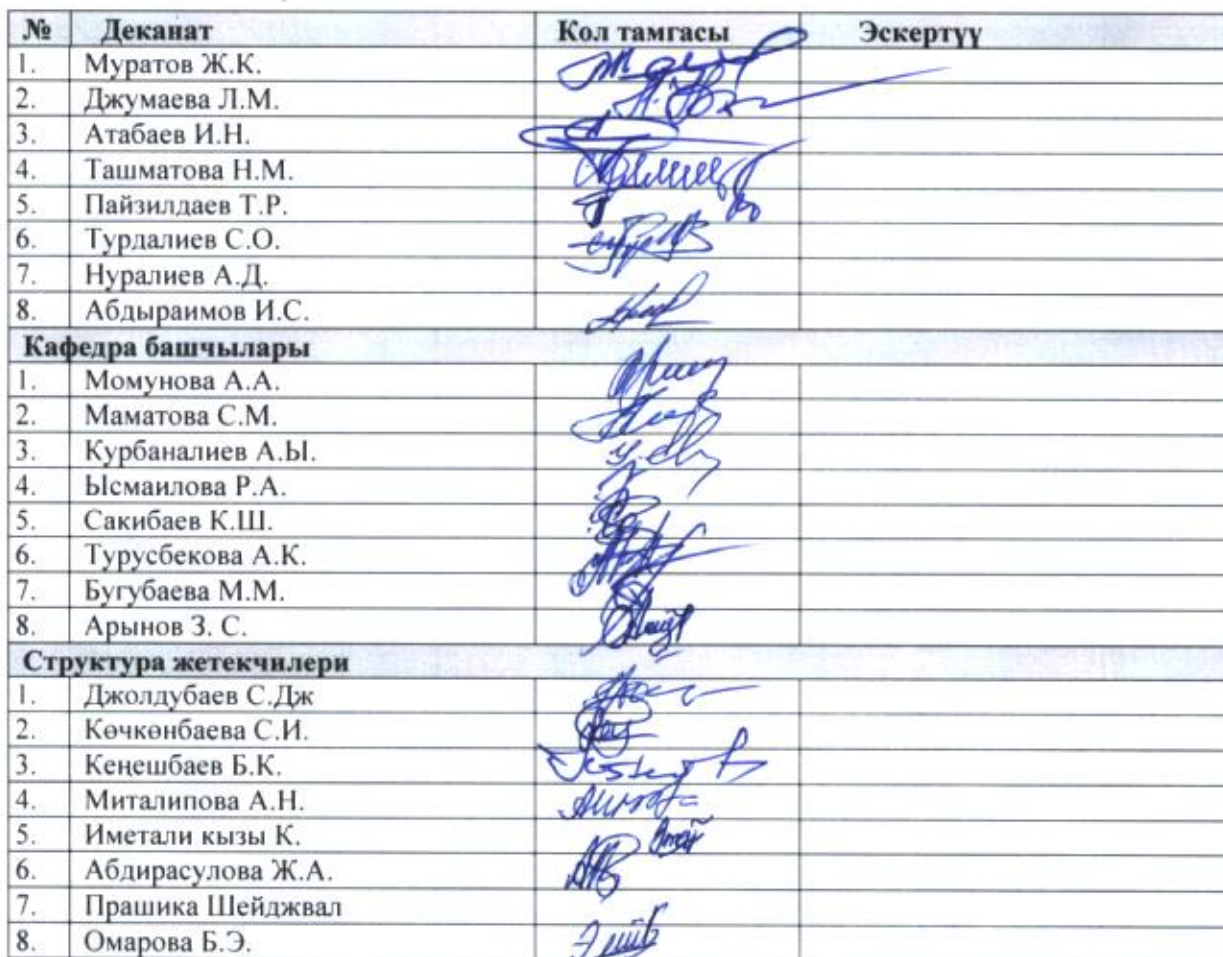 № Деканат Кол тамгасы Эскертүү
1. Муратов Ж.К.
2. Джумаева Л.М.
3. Атабаев И.Н.
4. Ташматова Н.М.
5. Пайзилдаев Т.Р.
6. Турдалиев С.О.
7. Нуралиев А.Д.
8. Абдыраимов И.С.
Кафедра башчылары
1. Момунова А.А.
2. Маматова С.М.
3. Курбаналиев А.Ы.
4. Ысмаилова Р.А.
5. Сакибаев К.Ш.
6. Турусбекова А.К.
7. Бугубаева М.М.
8. Арынов З. С.
Структура жетекчилери
1. Джолдубаев С.Дж
2. Көчкөнбаева С.И.
3. Кеңешбаев Б.К.
4. Миталипова А.Н.
5. Иметали кызы К.
6. Абдирасулова Ж.А.
7. Прашика Шейджвал
8. Омарова Б.Э.